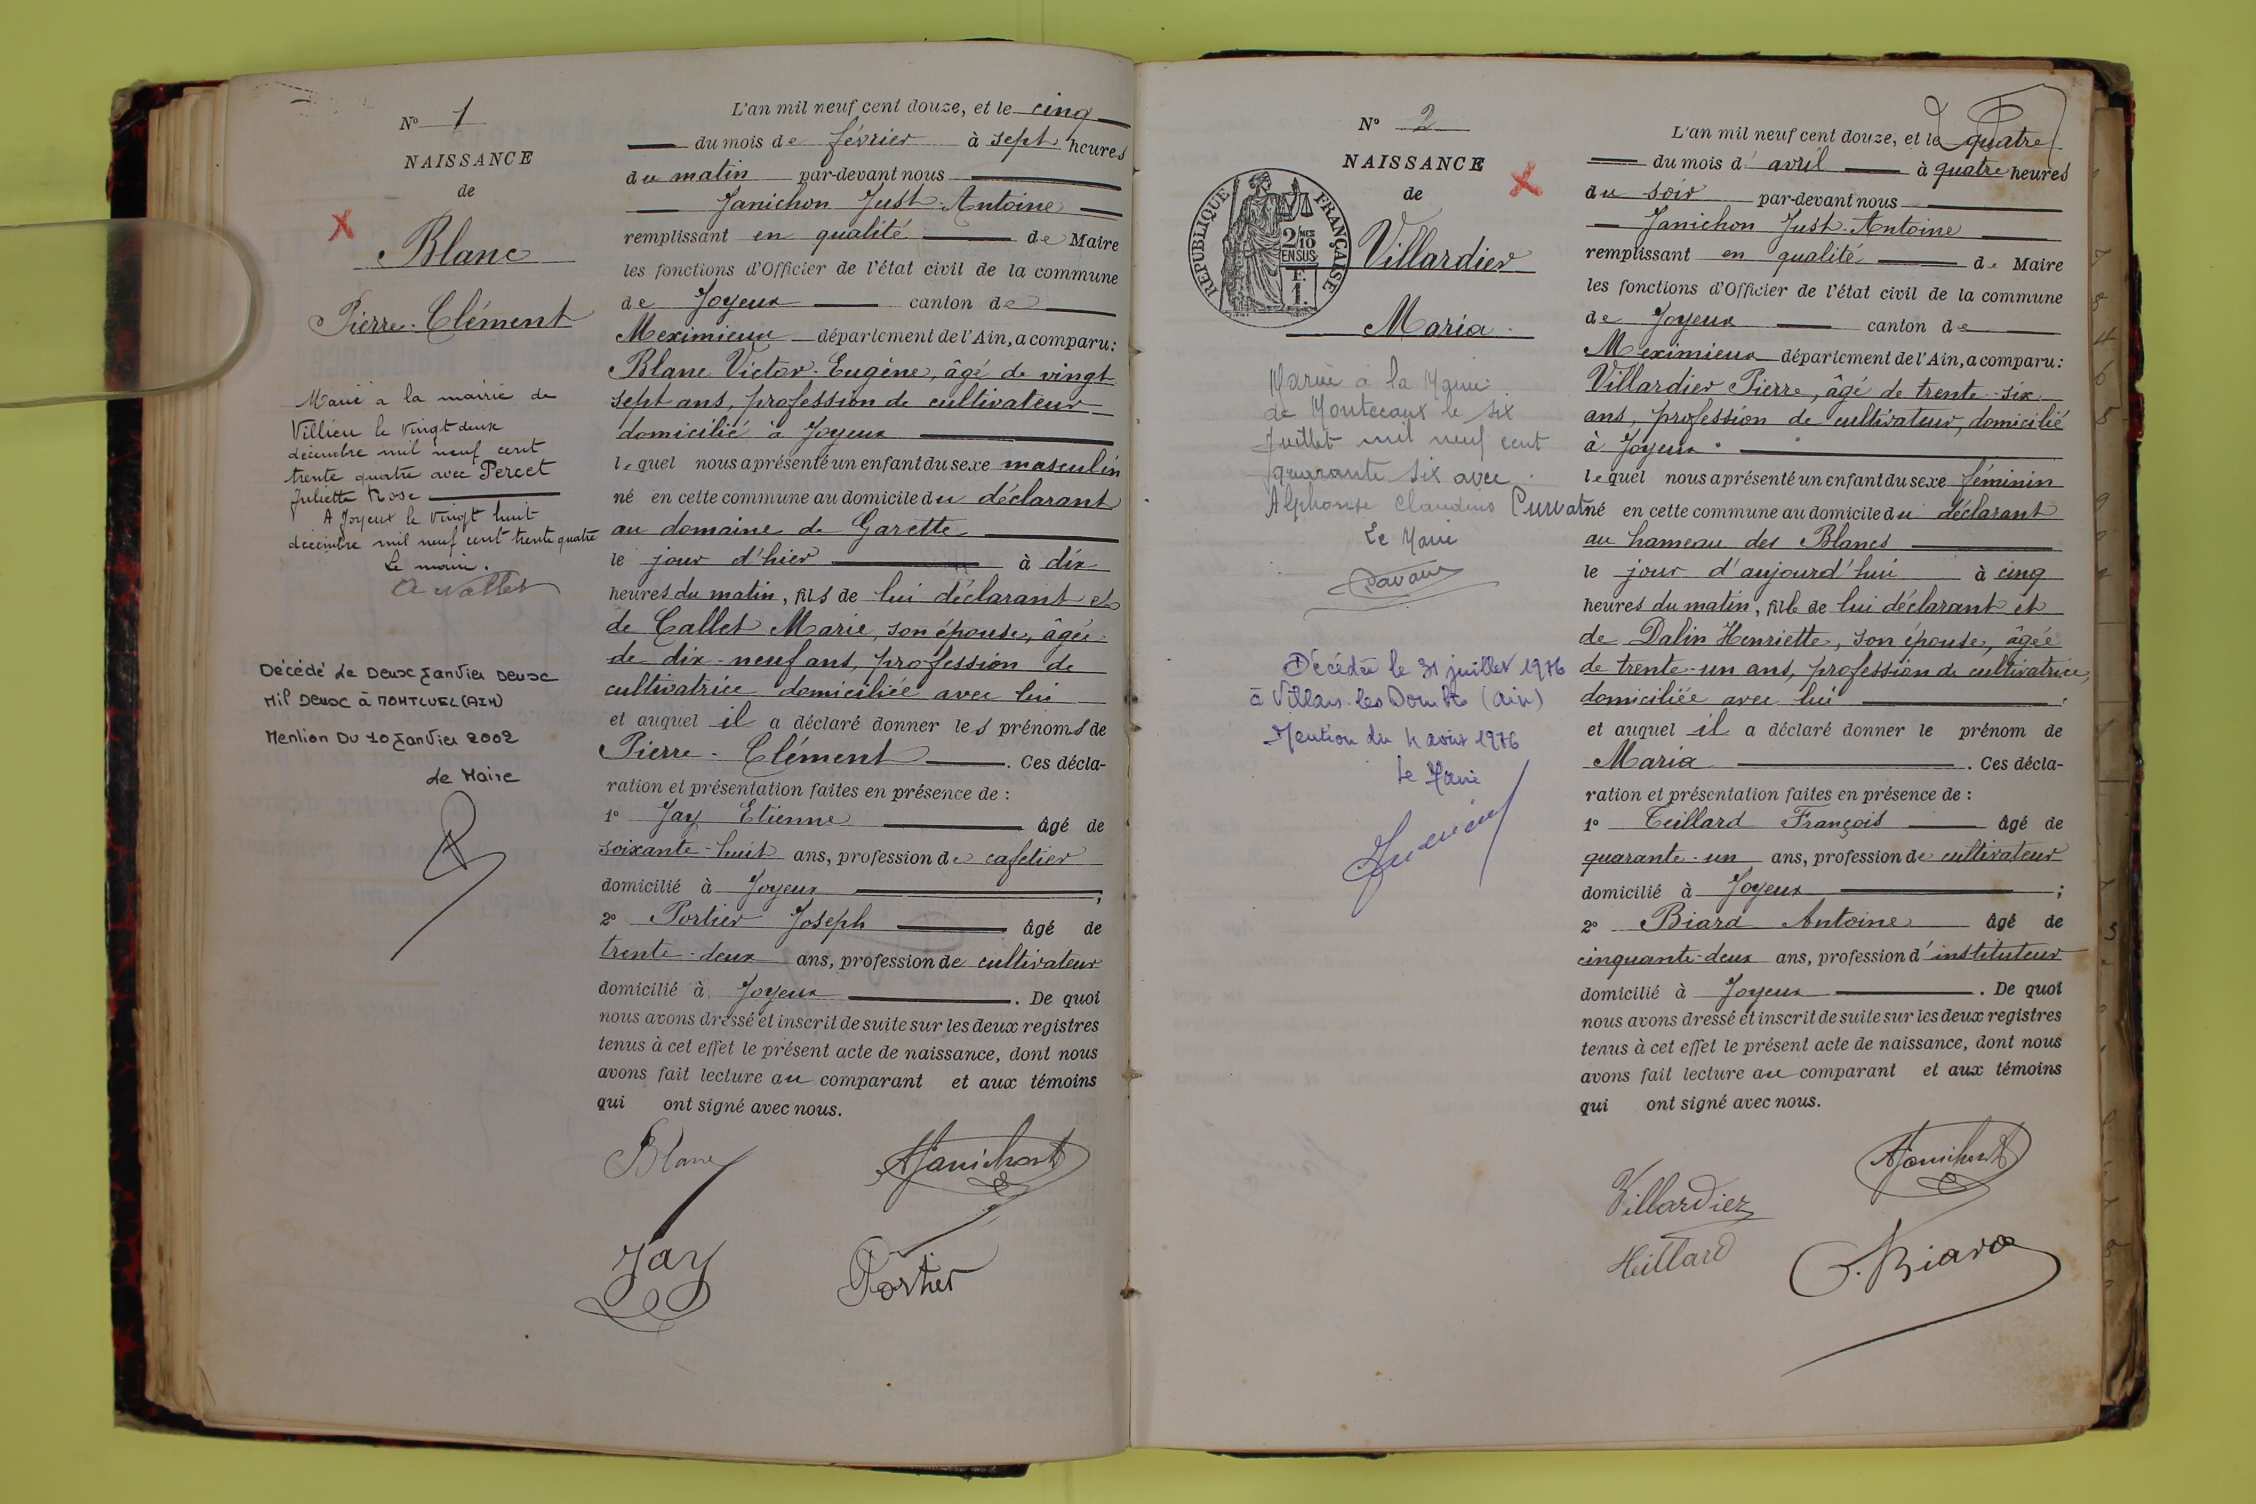 N° 1
NAISSANCE
de
Blanc
Pierre-Clément
Marié a la mairie de
Villieu le vingt deux
décembre mil neuf cent
trente quatre avec Percet
Juliette Rose
A Joyeux le vingt huit
décembre mil neuf cent trente quatre
Le maire.
Décédé le Deux Janvier Deux
Mil Deux à MONTLUEL (AIN)
Mention Du 10 Janvier 2002
Le Maire
L'an mil neuf cent douze, et le cinq
du mois de février à sept heures
du matin par-devant nous
Janichon Just-Antoine
remplissant en qualité de Maire
les fonctions d'Officier de l'état civil de la commune
de Joyeux canton de
Meximieux département de l'Ain, a comparu:
Blanc Victor-Eugène, âgé de vingt
sept ans, profession de cultivateur
domicilié à Joyeux
lequel nous a présenté un enfant du sexe masculin
né en cette commune au domicile du déclarant
au domaine de Garette
le jour d'hier à dix
heures du matin, fils de lui déclarant et
de Callet Marie, son épouse, âgée
de dix-neuf ans, profession de
cultivatrice domiciliée avec lui
et auquel il a déclaré donner les prénoms de
Pierre-Clément. Ces décla-
ration et présentation faites en présence de :
1° Jay Etienne âgé de
soixante-huit ans, profession de cafetier
domicilié à Joyeux ;
2° Portier Joseph âgé de
trente-deux ans, profession de cultivateur
domicilié à Joyeux. De quoi
nous avons dressé et inscrit de suite sur les deux registres
tenus à cet effet le présent acte de naissance, dont nous
avons fait lecture au comparant et aux témoins
qui ont signé avec nous.
Blanc
AJanichon
Jay
Portier
N° 2
NAISSANCE
de
REPUBLIQUE FRANÇAISE
2/10 MES
EN SUS
F.
1.
Villardier
Maria
Mariée à la Mairie
de Monteceaux le six
Juillet mil neuf cent
quarante six avec
Alphonse Claudius
Le Maire
Décédée le 31 juillet 1976
à Villars-les-Dombes (Ain)
Mention du 4 août 1976
Le Maire
L'an mil neuf cent douze, et le quatre
du mois d'avril à quatre heures
du soir par-devant nous
Janichon Just-Antoine
remplissant en qualité de Maire
les fonctions d'Officier de l'état civil de la commune
de Joyeux canton de
Meximieux département de l'Ain, a comparu:
Villardier Pierre, âgé de trente-six
ans, profession de cultivateur, domicilié
à Joyeux
lequel nous a présenté un enfant du sexe féminin
né en cette commune au domicile du déclarant
au hameau des Blancs
le jour d'aujourd'hui à cinq
heures du matin, fille de lui déclarant et
de Dalin Henriette, son épouse, âgée
de trente-un ans, profession de cultivatrice,
domiciliée avec lui
et auquel il a déclaré donner le prénom de
Maria. Ces décla-
ration et présentation faites en présence de :
1° Teillard François âgé de
quarante-un ans, profession de cultivateur
domicilié à Joyeux ;
2° Biard Antoine âgé de
cinquante-deux ans, profession d'instituteur
domicilié à Joyeux. De quoi
nous avons dressé et inscrit de suite sur les deux registres
tenus à cet effet le présent acte de naissance, dont nous
avons fait lecture au comparant et aux témoins
qui ont signé avec nous.
AJanichon
Villardier
Teillard
A. Biard